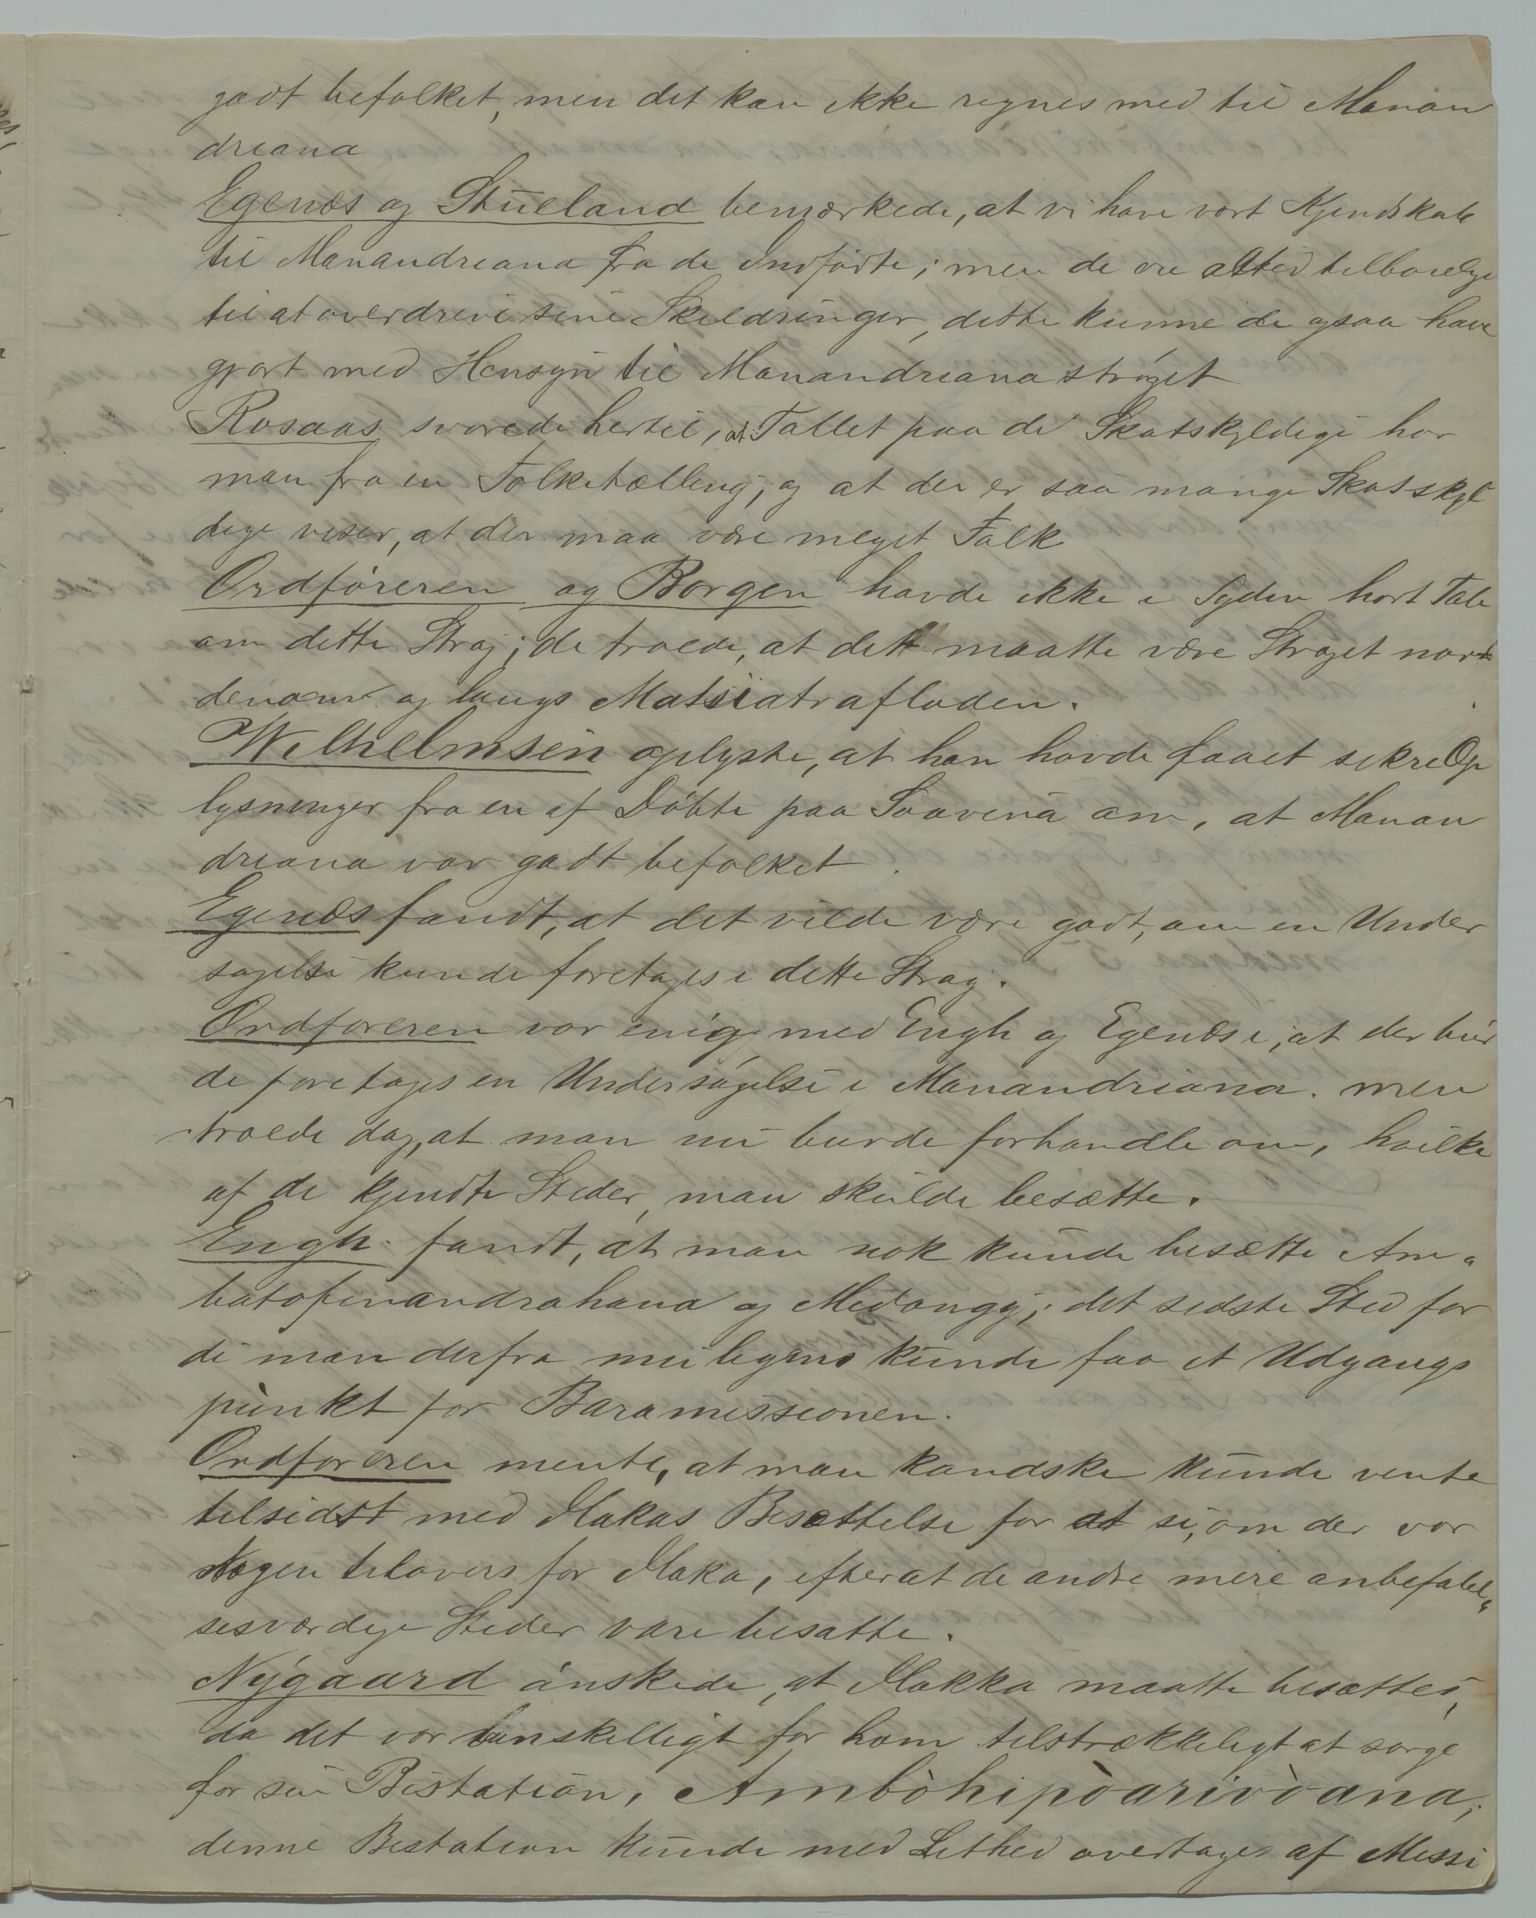 godt befolket, men det kan ikke regnes med til Manan
driana
Egenæs og Stueland bemærkede, at vi have vort Kjendskab
til Manandriana fra de Indfødte; men de ere altid tilbøielige
til at overdrive sine Skildringer, dette kunne de ogsaa have
gjort med Hensyn til Manandrianastrøget
Rosaas svarede hertil, at Tallet paa de Skatskyldige har
man fra en Folketælling, og at der er saa mange Skatskyl
dige viser, at der maa være meget Folk
Ordføreren og Borgen havde ikke i Syden hørt Tale
om dette Strøg; de troede, at det maatte være Strøget nor
denom og langs Matsiatrafloden.
Wilhelmsen oplyste, at han havde faaet sikre Op
lysninger fra en af Døbte paa Soavina om, at Manan
driana var godt befolket.
Egenæs fandt, at det vilde være godt, om en Under
søgelse kunde foretages i dette Strøg.
Ordføreren var enig med Engh og Egenæs i, at der bur
de foretages en Undersøgelse i Manandriana. men
troede dog, at man nu burde forhandle om, hvilke
af de kjendte Steder, man skulde besætte.
Engh fandt, at man nok kunde besætte Am„
batofinandrahana og Midongy; det sidste Sted for
di man derfra muligens kunde faa et Udgangs
punkt for Baramissionen.
Ordføreren mente, at man kandske kunde vente
tilsidst med Ilakas Besættelse for at se, om der var
Nogen tilovers for Ilaka, efterat de andre mere anbefalel„
sesværdige Steder vare besatte.
Nygaard ønskede, at Ilakka maatte besættes,
da det var vanskelligt for ham tilstrækkeligt at sørge
for sin Bistation, Ambòhipòarivòana;
denne Bistation kunde med Lethed overtages af Missi